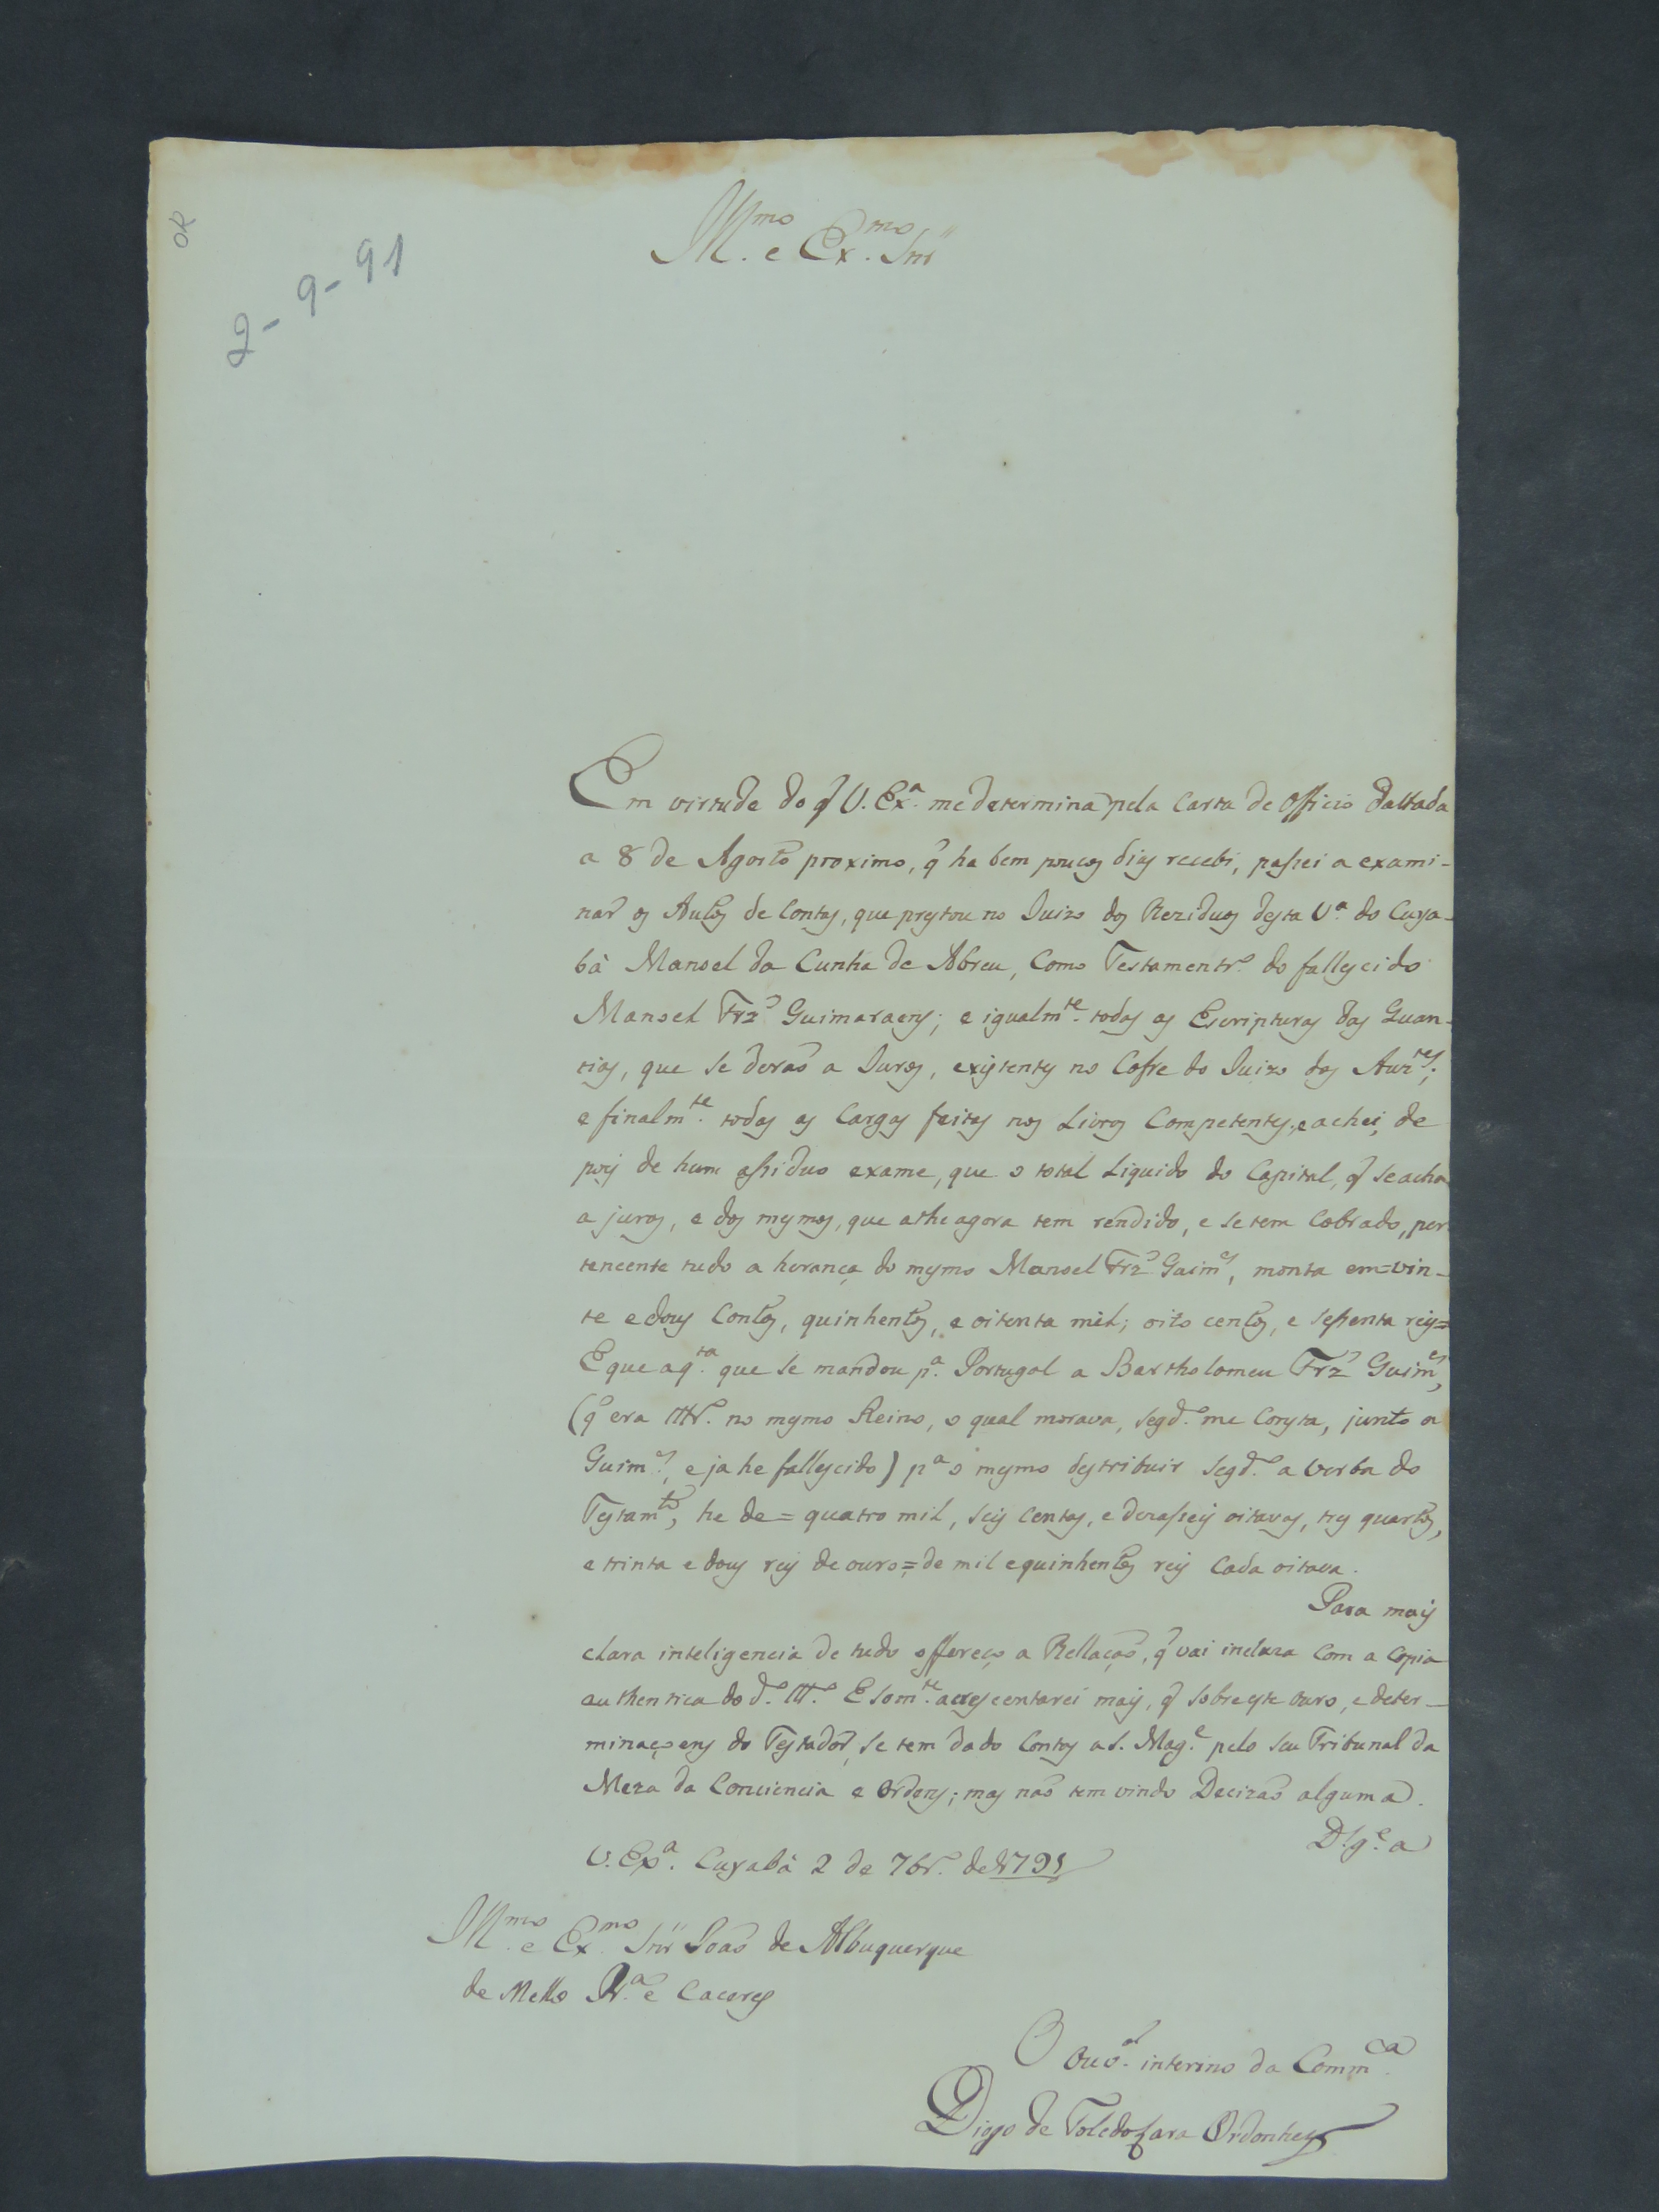 OR
2-9-91
Ill.mo e Ex.mo Snr̃
Em virtude do q̃ V. Ex.a me determina pela Carta de Officio dattada
a 8 de Agosto proximo, q̃ ha bem poucos dias recebi, passei a exami-
nar os Autos de Contas, que prestou no Juizo dos Reziduos desta V.a do Cuya-
bà Manoel da Cunha de Abreu, Como Testamentr.o do fallescido
Manoel Frz̃ Guimaraens; e igualm.te todas as Escripturas das Quan-
tias, que se deraõ a Juros, existentes no Cofre do Juizo dos Auz.tes;
e finalm.te todas as Cargas feitas nos Livros Competentes, e achei, de
pois de hum assiduo exame, que o total Liquido do Capital, q̃ se acha
a juros, e dos mesmos, que athe agora tem rendido, e se tem Cobrado, per
tencente tudo a herança do mesmo Manoel Frz̃ Guim.es, monta em=vin-
te e dous Contos, quinhentos, e oitenta mil; oito centos, e sessenta reis=
E que a q.ta que se mandou p.a Portugal a Bartholomeu Frz̃ Guim.es,
(q̃ era ttr.o no mesmo Reino, o qual morava, segd.o me Consta, junto a
Guim.es, e ja he fallescido) p.a o mesmo destribuir segd.o a verba do
Testam.to, he de= quatro mil, seis centas, e dezasseis oitavas, tres quartos,
e trinta e dous reis de ouro=de mil e quinhentos reis Cada oitava.
Para mais
clara inteligencia de tudo offereço a Rellaçaõ, q̃ vai incluza Com a Copia
authentica do d.o tt.o E som.te acrescentarei mais, q̃ sobre este ouro, e deter-
minaçoens do Testador, se tem dado Contas a S. Mag.e pelo seu Tribunal da
Meza da Conciencia e Ordens; mas naõ tem vindo Decizaõ alguma.
D.s g.e a
V. Ex.a. Cuyabà 2 de 7br.o de 1791
Ill.mo e Ex.mo Snr̃ Joaõ de Albuquerque
de Mello Pr.a e Caceres
O Ouv.or interino da Comm.ca
Diogo de Toledo Lara Ordonhes